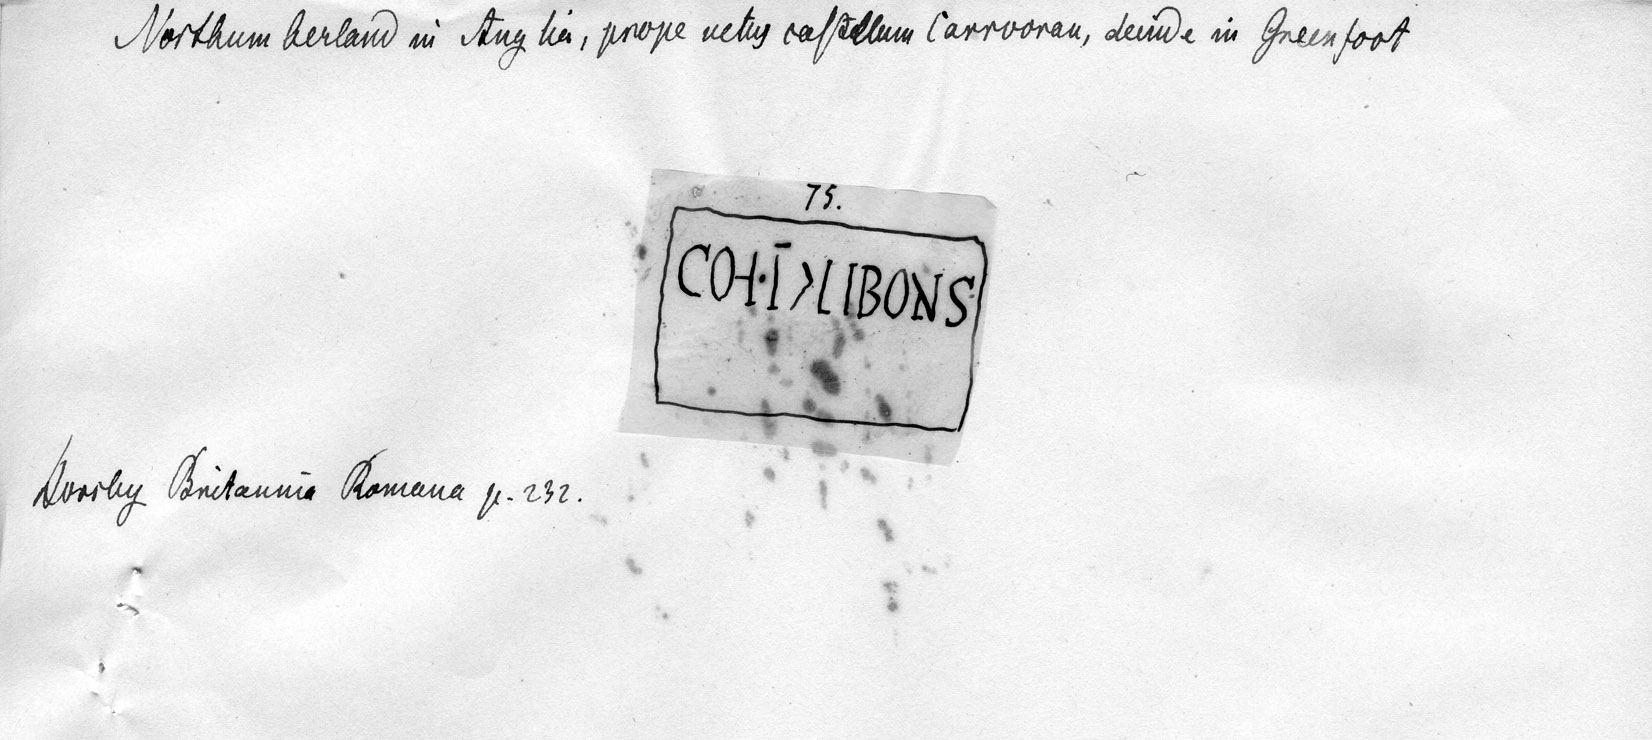 Northumberland in Anglia, prope vetus castellum Carrvoran, deinde in Greenfoot
75.
COH·Ī>LIBONS
Horsley Britannia Romana p. 232.